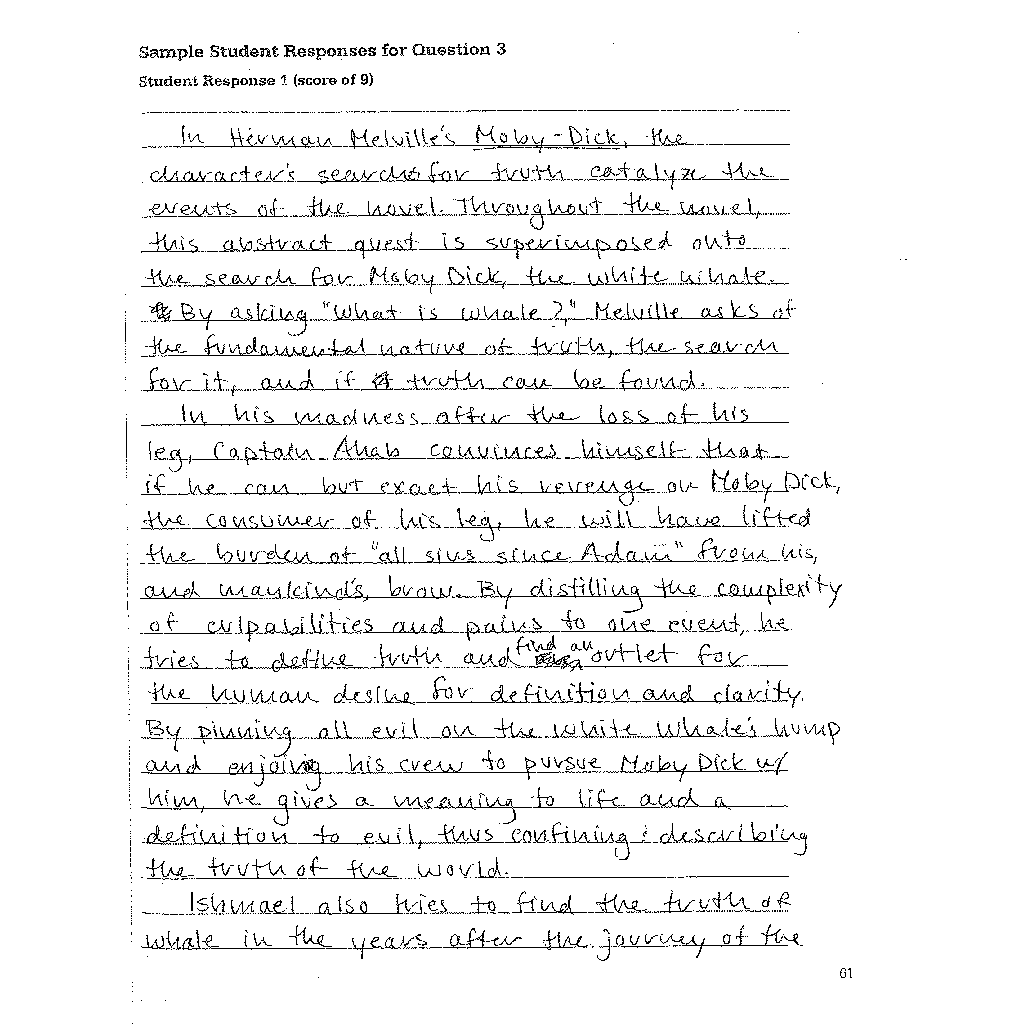 Sample Student Responses for Question 3
Student Response 1 (score of 9)
In Herman Melville's Moby-Dick, the
character's search for truth catalyze the
events of the novel. Throughout the novel,
this abstract quest is superimposed onto
the search for Moby Dick, the white whale.
By asking "What is whale?," Melville asks of
the fundamental nature of truth, the search
for it, and if truth can be found.
In his madness after the loss of his
leg, Captain Ahab convinces himself that
if he can but exact his revenge on Moby Dick,
the consumer of his leg, he will have lifted
the burden of "all sins since Adam" from his,
and mankind's, brow. By distilling the complexity
of culpabilities and pains to one event, he
tries to define truth and find an outlet for
the human desire for definition and clarity.
By pinning all evil on the white whale's hump
and enjoining his crew to pursue Moby Dick w/
him, he gives a meaning to life and a
definition to evil, thus confining & describing
the truth of the world.
Ishmael also tries to find the truth of
whale in the years after the journey of the
61